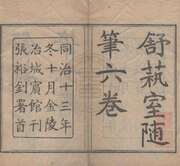 舒蓺室隨
筆六卷
同治十三年
冬十月金陵
冶城賓館刊
張裕釗署首